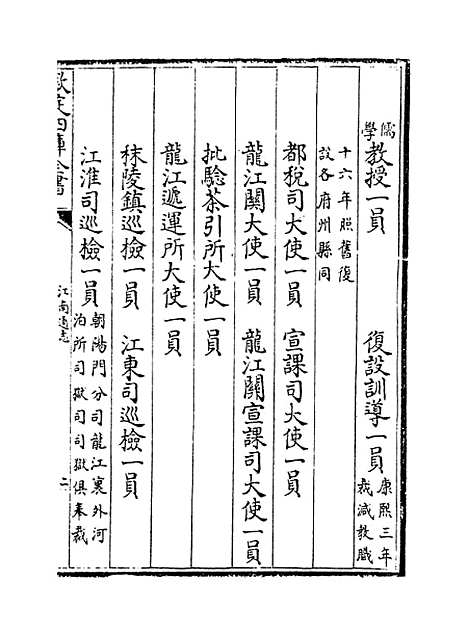 儒學教授一員　復設訓導一員康熙三年裁減教職
十六年照舊復設各府州縣同
都稅司大使一員　宣課司大使一員
龍江關大使一員　龍江關宣課司大使一員
批驗茶引所大使一員
龍江遞運所大使一員
秣陵鎮巡檢一員　江東司巡檢一員
江淮司巡檢一員朝陽門分司龍江裏外河泊所司獄司司獄俱奉裁
欽定四庫全書
江南通志
二